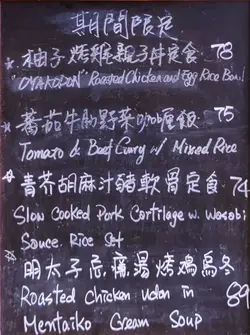 期間限定
☆ 柚子烤雞親子丼定食 78
"OYAKODON" Roasted Chicken and Egg Rice Bowl
☆ 蕃茄牛肋野菜咖喱飯 75
Tomato & Beef Curry w/ Mixed Rice
☆ 青芥胡麻汁豬軟骨定食 74
Slow Cooked Pork Cartilage w. Wasabi
Sauce Rice Set
☆ 明太子忌廉湯烤鷄烏冬
Roasted Chicken Udon in 89
Mentaiko Cream Soup